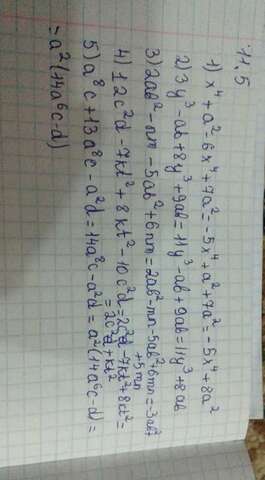 11.5
1) x⁴+a²-6x⁴+7a²=-5x⁴+a²+7a²=-5x⁴+8a²
2) 3y³-ab+8y³+9ab=11y³-ab+9ab=11y³+8ab
3) 2ab²-nm-5ab²+6nm=2ab²-mn-5ab²+6mn=-3ab²
+5mn
4) 12c²d-7kt²+8kt²-10c²d=2c²d-7kt²+8kt²=
=2c²d+kt²
5) a⁸c+13a⁸c-a²d=14a⁸c-a²d=a²(14a⁶c-d)=
=a²(14a⁶c-d)